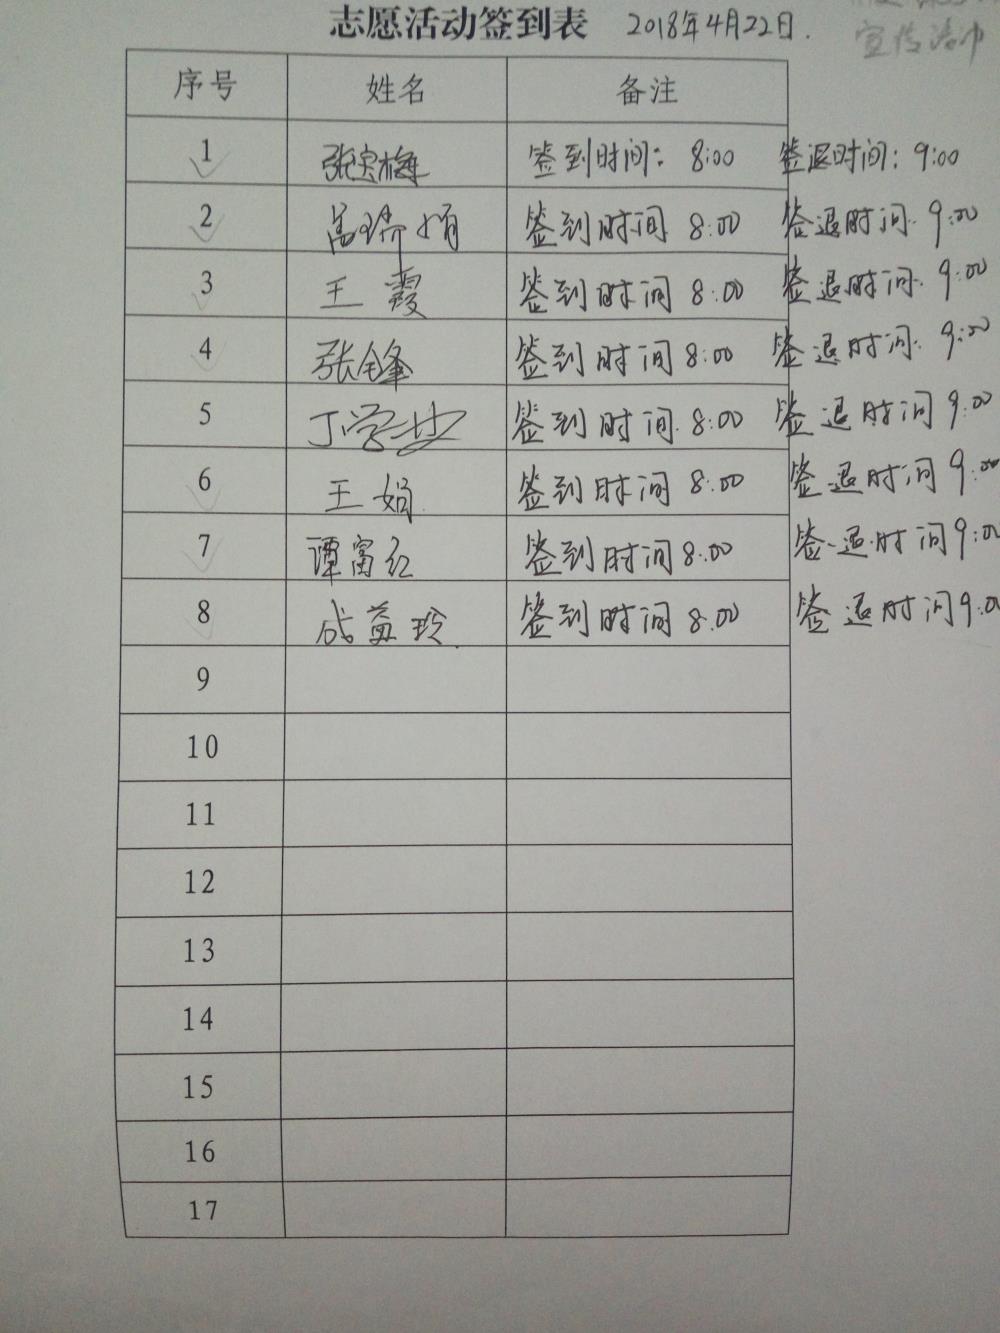 志愿活动签到表 2018年4月22日.
宣传活动
序号 姓名 备注
1 张宝梅 签到时间: 8:00 签退时间: 9:00
2 高瑞娟 签到时间 8:00 签退时间. 9:00
3 王霞 签到时间 8:00 签退时间. 9:00
4 张锋 签到时间 8:00 签退时间. 9:00
5 签到时间. 8:00 签退时间 9:00
6 王娟 签到时间 8:00 签退时间 9:00
7 谭富红 签到时间 8:00 签退时间 9:00
8 成益玲. 签到时间 8:00 签退时间 9:00
9
10
11
12
13
14
15
16
17